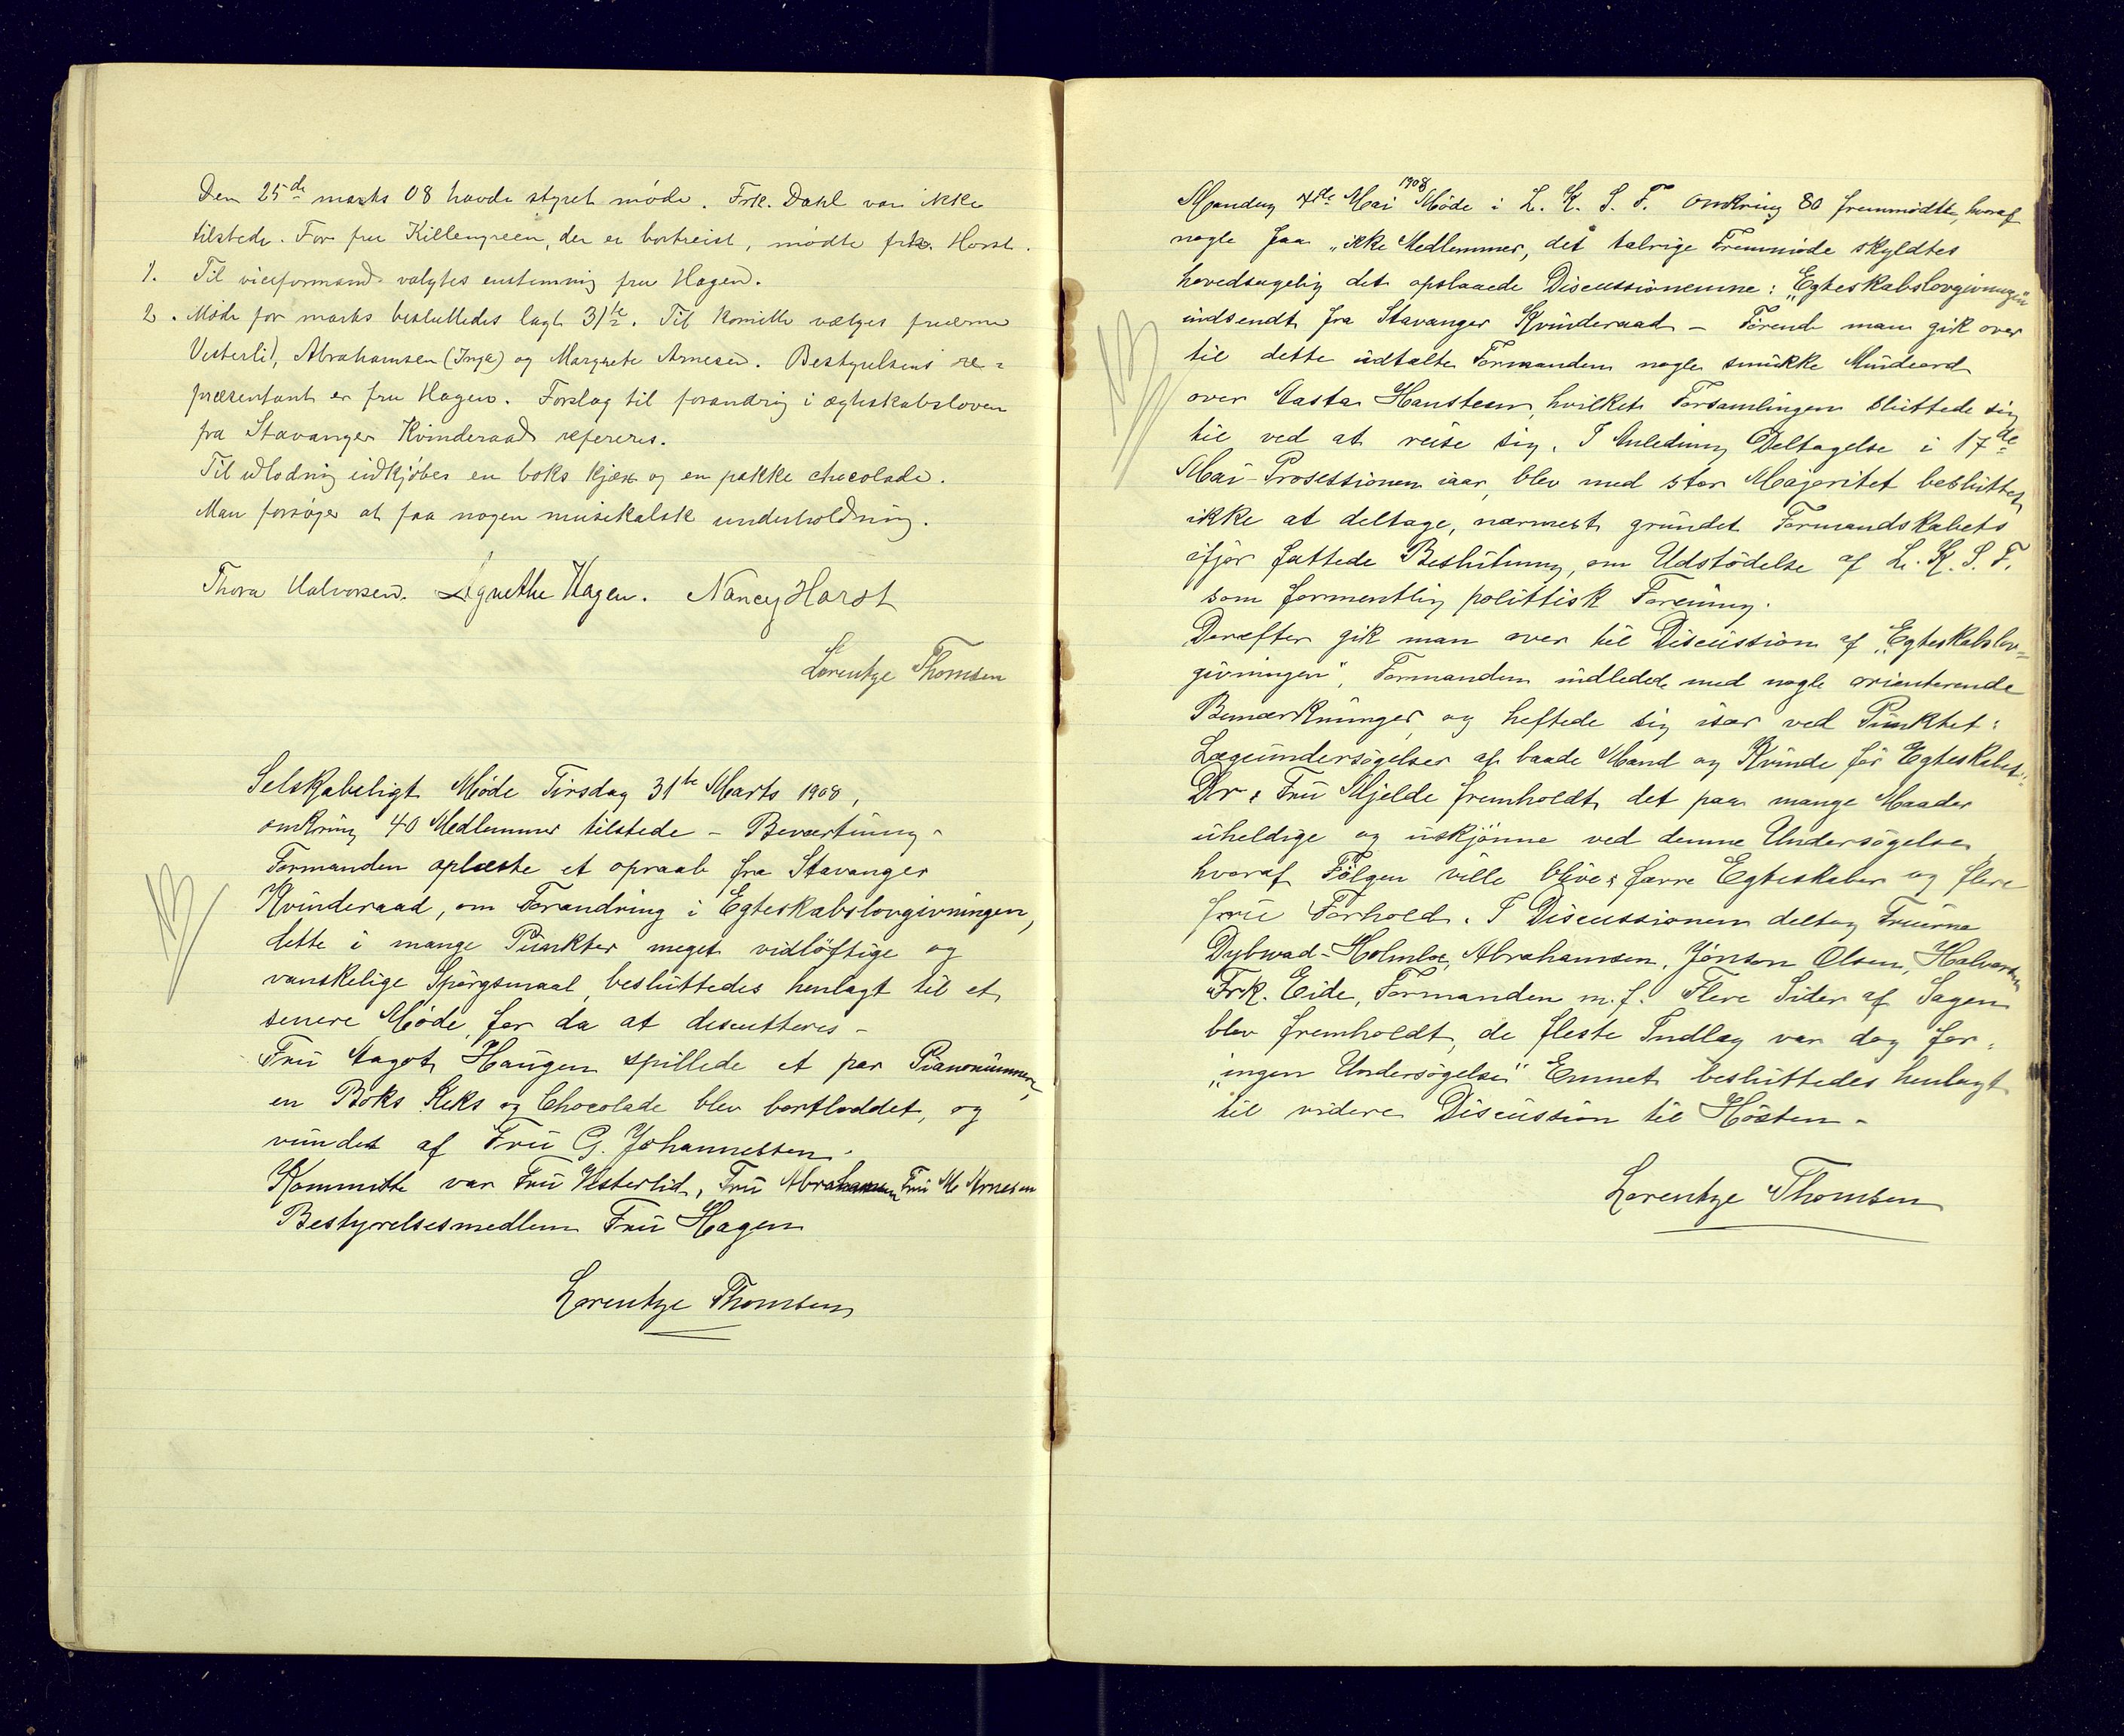 Den 25de marts 08 havde styret møde. Frk. Dahl var ikke
tilstede. For fru Killengreen, der er bortreist, mødte frk. Horst.
1. Til viceformand valgtes enstemmig fru Hagen.
2. Møde for marts besluttedes lagt 31te. Til komitte vælges fruerne
Vesterlid, Abrahamsen (Inga) og Margrete Arnesen. Bestyrelsens re-
præsentant er fru Hagen. Forslag til forandrig i ægteskabsloven
fra Stavanger Kvinderaad refereres.
Til udlodnig indkjøbes en boks kjæx og en pakke chocolade.
Man forsøger at faa nogen musikalsk underholdning.
Thora Halvorsen. Agnethe Hagen. Nancy Horst
Lorentze Thomsen
Selskabeligt Møde Tirsdag 31te Marts 1908,
omkring 40 Medlemmer tilstede – Beværtning –
Formanden oplæste et opraab fra Stavanger
Kvinderaad, om Forandring i Egteskabslovgivningen,
dette i mange Punkter meget vidløftige og
vanskelige Spørgsmaal, besluttedes henlagt til et
senere Møde, for da at discutteres –
Fru Aagot Haugen spillede et par Pianonummere,
en Boks Keks og Chocolade blev bortloddet, og
vundet af Fru G. Johannessen.
Kommitte var Fru Vesterlid, Fru Abrahamsen Fru M Arnesen
Bestyrelsesmedlem Fru Hagen
Lorentze Thomsen
Mandag 4de Mai 1908 Møde i L. K. S. F. Omkring 80 fremmødte, hvoraf
nogle faa „ikke Medlemmer, det talrige Fremmøde skyldtes
hovedsagelig det opslaaede Discussionemne: „Egteskabslovgivningen"
indsendt fra Stavanger Kvinderaad – Førend man gik over
til dette udtalte Formanden nogle smukke Mindeord
over Aasta Hansteen, hvilket Forsamlingen sluttede sig
til ved at reise sig. I Anledning Deltagelse i 17de
Mai-Prosessionen iaar, blev med stor Majoritet besluttet
ikke at deltage, nærmest grundet Formandskabets
ifjor fattede Beslutning, om Udstødelse af L. K. S. F.
som formentlig politisk Forening.
Derefter gik man over til Discussion af „Egteskabslov-
givningen", Formanden indledede med nogle orienterende
Bemærkninger, og heftede sig især ved Punktet:
Lægeundersøgelser af baade Mand og Kvinde før Egteskabet.
Dr. Fru Mjelde fremholdt det paa mange Maader
uheldige og uskjønne ved denne Undersøgelse
hvoraf Følgen ville blive: færre Egteskaber og flere
frie Forhold. I Discussionen deltog Fruerne
Dybwad-Holmboe, Abrahamsen, Jönson Olsen, Halvorsen
Frk. Eide, Formanden m. f. Flere Sider af Sagen
blev fremholdt, de fleste Indlæg var dog for:
„ingen Undersøgelse" Emnet besluttedes henlagt
til videre Discussion til Høsten –
Lorentze Thomsen